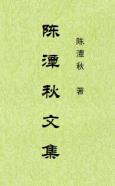 陈潭秋文集
陈潭秋 著